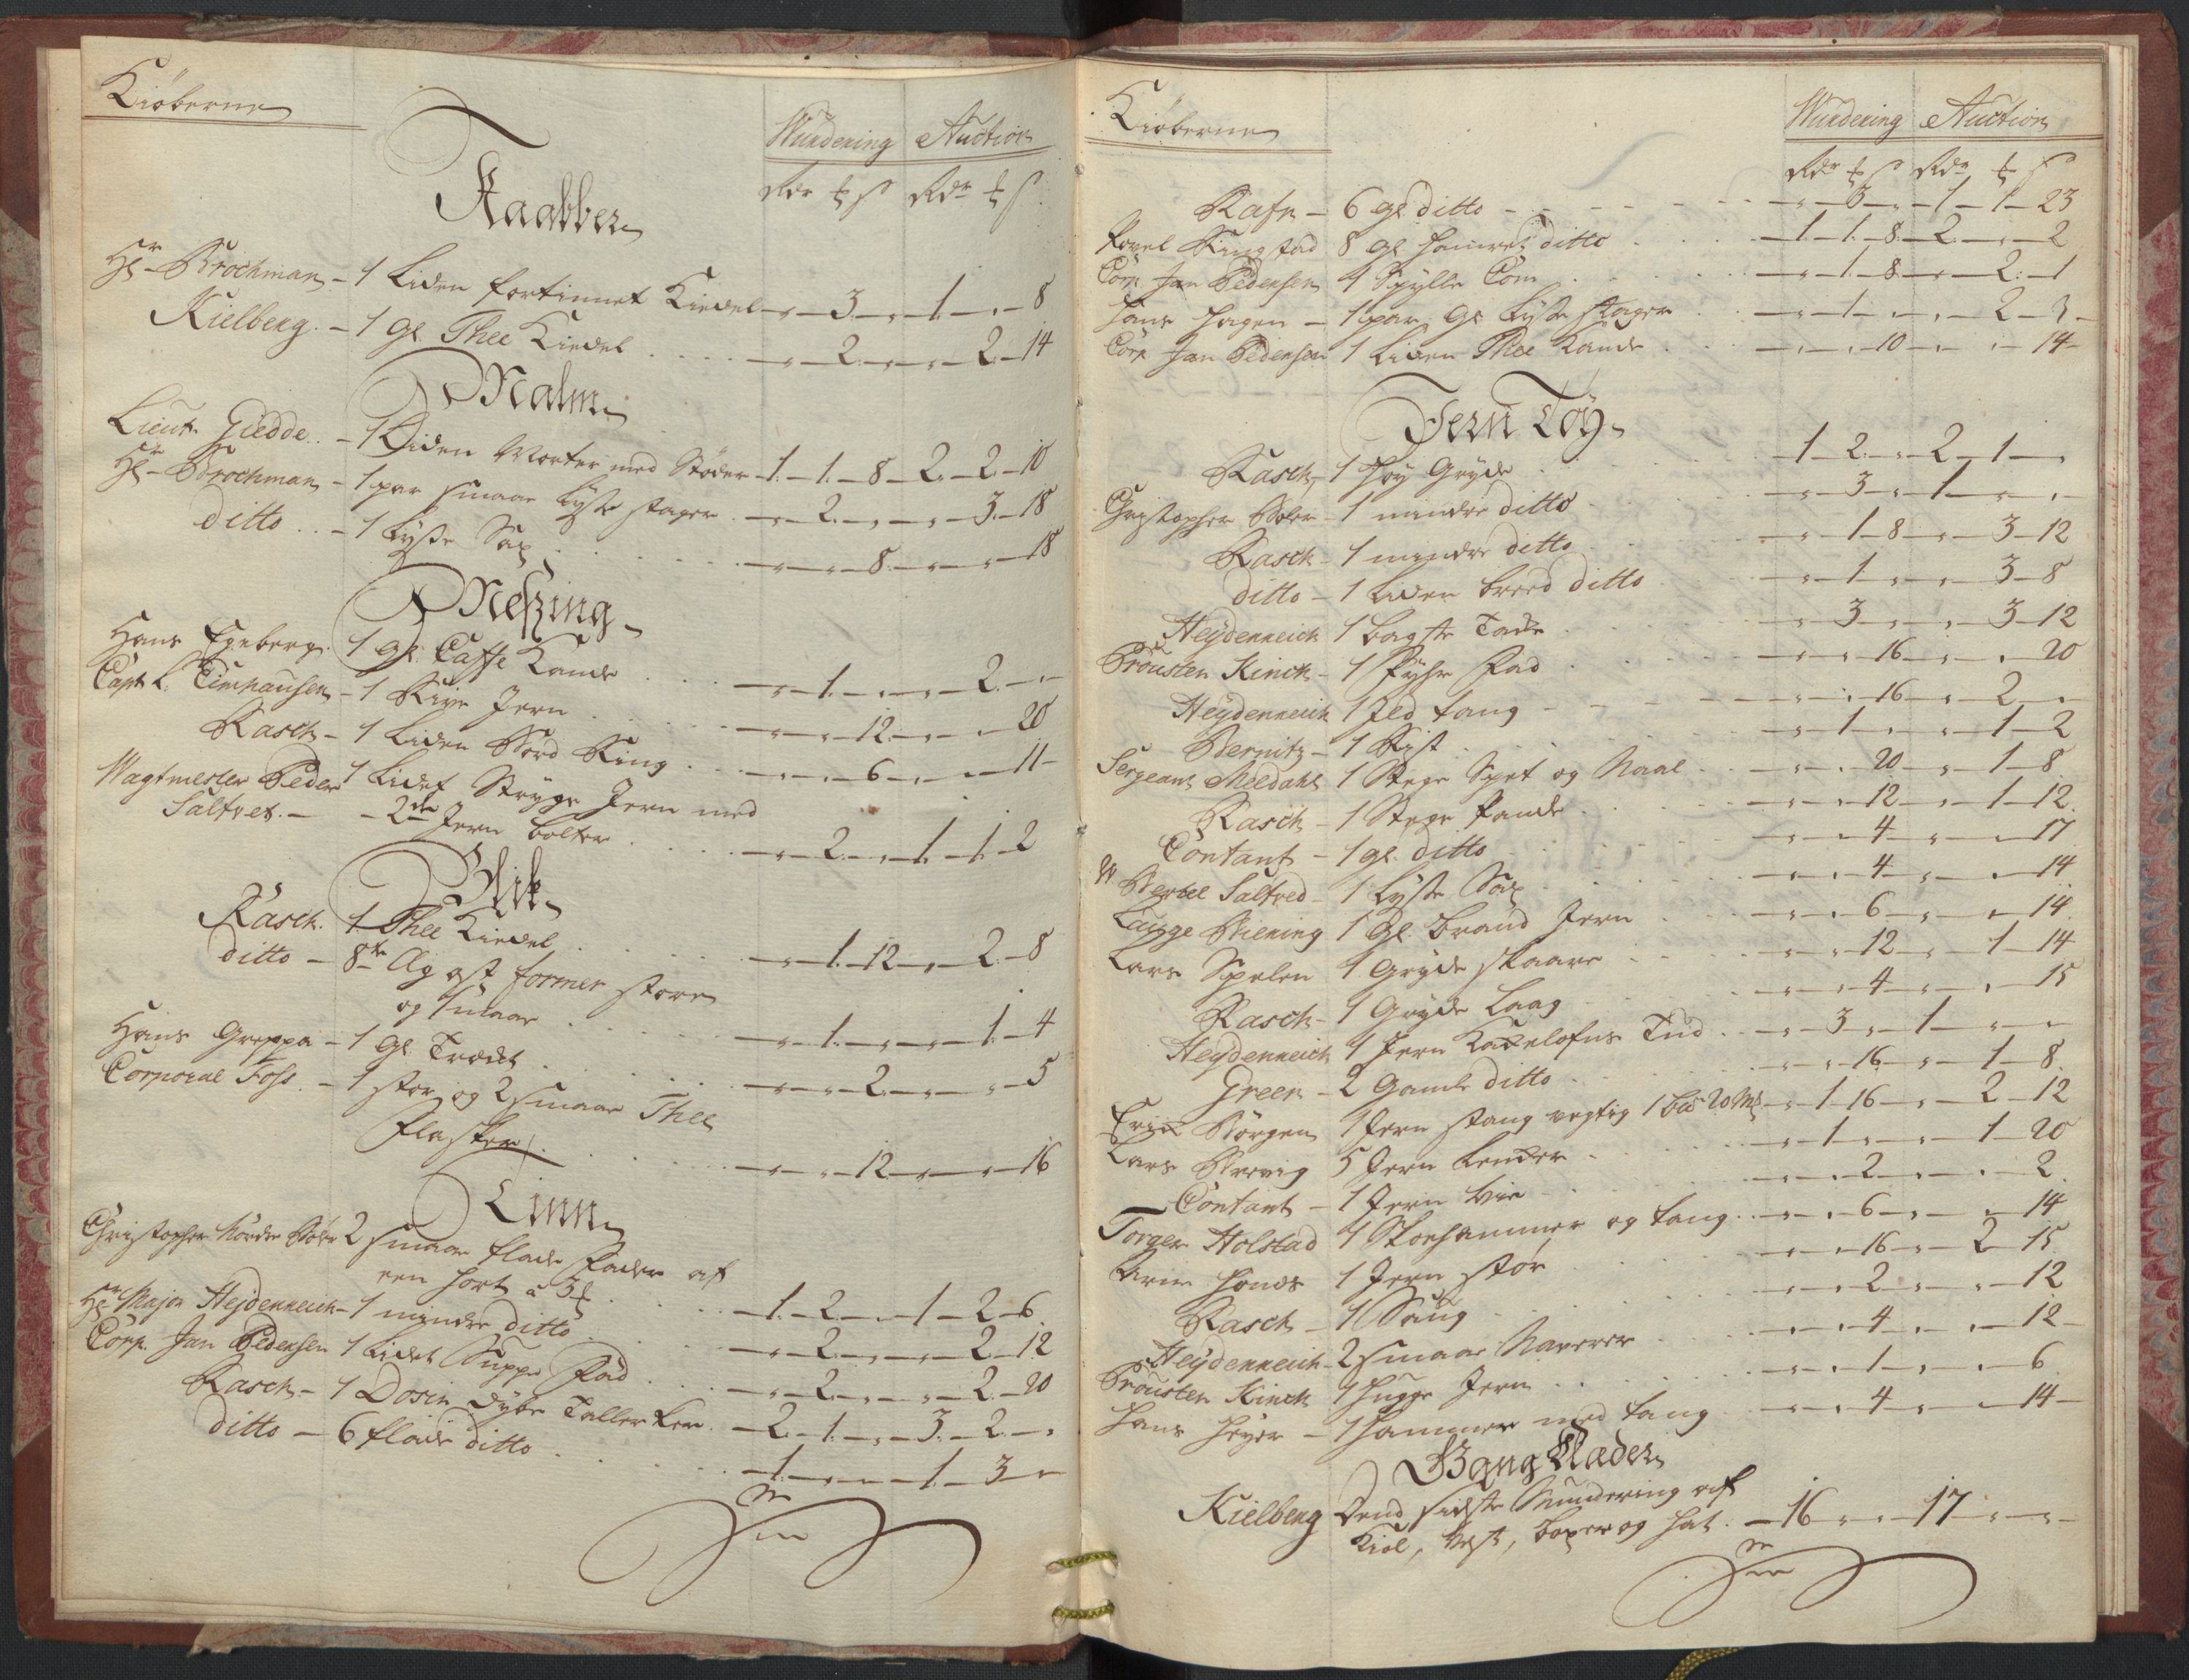 Kiøberne
Wurdering Auction
Rdr ß Rdr ß
Kaabber
Hr Brochman - 1 Liden fortinnet Kiedel - " - 3 - " - 1 - " - 8
Kielberg. - 1 gl. Thee Kiedel - " - 2 - " - " - 2 - 14
Malm
Lieut. Giedde - 1 Liden Morter med Støder - 1 - 1 - 8 - 2 - 2 - 10
Hr Brochman - 1 par smaae Lyse stager - " - 2 - " - " - 3 - 18
ditto - 1 Lyse Sax - " - " - 8 - " - " - 18
Meszing
Hans Egeberg. 1 gl. Caffe Kande - " - 1 - " - " - 2 - "
Capt. L. Cimhausen - 1 Rive Jern - " - " - 12 - " - " - 20
Rasch - 1 Liden Bord Ring - " - " - 6 - " - " - 11
Wagtmester Peder 1 Lidet Stryge Jern med
Saltvet. - 2de Jern bolter - " - 2 - " - 1 - 1 - 2
Blik
Rasch. 1 Thee Kiedel - " - 1 - 12 - " - 2 - 8
ditto - 8te Æg ost former store
og smaae - " - 1 - " - " - 1 - 4
Hans Greppa - 1 gl. Tragt - " - " - 2 - " - " - 5
Corporal Foss. - 1 stor og 2 smaae Thee
Flasker - " - " - 12 - " - " - 16
Tinn
Christopher Nordre Boler 2 smaae flade Fader af
een sort a 3 - 1 - 2 - " - 1 - 2 - 6
Hr Major Heydenreich - 1 mindre ditto - " - 2 - " - " - 2 - 12
Corp. Jan Pedersen 1 Lidet Suppe Fad - " - 2 - " - " - 2 - 20
Rasch - 1 Dosin dybe Tallerker - 2 - 1 - " - 3 - 2 - "
ditto - 6 flade ditto - 1 - " - " - 1 - 3 - "
Kiøberne
Wurdering Auction
Rdr ß Rdr ß
Rafn - 6 gl. ditto - " - 3 - " - 1 - 1 - 23
Povel Ringstad 8 gl. ditto - 1 - 1 - 8 - 2 - " - 2
Corp. Jan Pedersen 1 Spylle Com - " - 1 - 8 - " - 2 - 1
Hans Hagen - 1 par gl. Lyse stager - " - 1 - " - " - 2 - 3
Corp. Jan Pedersen 1 Liden Thee Kande - " - " - 10 - " - " - 14
Jern Töy
Rasch - 1 høy Gryde - 1 - 2 - " - 2 - 1 - "
Christopher Boler - 1 mindre ditto - " - 3 - " - 1 - " - "
Rasch - 1 mindre ditto - " - 1 - 8 - " - 3 - 12
ditto - 1 Liden breed ditto - " - 1 - " - " - 3 - 8
Heydenreich 1 bagste Take - " - 3 - " - " - 3 - 12
Prousten Kinck - 1 Fyhr Fad - " - " - 16 - " - " - 20
Heydenreich 1 Ild tang - " - " - 16 - " - 2 - "
Bernitz - 1 Rist - " - 1 - " - " - 1 - 2
Sergeant Meedahl 1 Stege Spet og Naal - " - " - 20 - " - 1 - 8
Rasch - 1 Stege Pande - " - " - 12 - " - 1 - 12
Contant - 1 gl. ditto - " - " - 4 - " - " - 17
W Saltved - 1 Lyse Sax - " - " - 4 - " - " - 14
Lauge Biening 1 gl. Brand Jern - " - " - 6 - " - " - 14
Lars Spelen 1 Gryde skaare - " - " - 12 - " - 1 - 14
Rasch - 1 Gryde Laag - " - " - 4 - " - " - 15
Heydenreich 1 Jern Kakelofns Tud - " - 3 - " - 1 - " - "
Green - 2 Gamle ditto - " - " - 16 - " - 1 - 8
Erik Børgen 1 Jern stang vegtig 1 20 - " - 1 - 16 - " - 2 - 12
Lars Brevig 5 Jern Lenker - " - 1 - " - " - 1 - 20
Contant - 1 Jern - " - " - 2 - " - " - 2
Torger Holstad 1 Skoehammer og tang - " - " - 6 - " - " - 14
1 Jern stör - " - " - 16 - " - 2 - 15
Rasch - 1 Saug - " - " - 2 - " - " - 12
Heydenreich - 2 smaae Naverer - " - " - 4 - " - " - 12
Prousten Kinck 1 Hugge Jern - " - " - 1 - " - " - 6
Hans Heyer - 1 Hammer med tang - " - " - 4 - " - " - 14
Gang Klæder
Kielberg Dend sidste Mundering af
Kiol, West, boxer og hat. - 16 - " - " - 17 - " - "